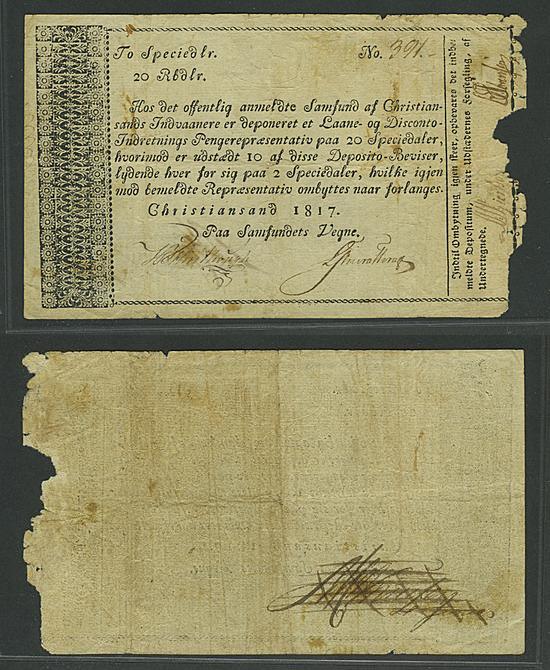 To Speciedlr. No. 397.
20 Rbdlr.
Hos det offentlig anmeldte Samfund af Christian-
sands Indvaanere er deponeret et Laane- og Disconto-
Indretnings Pengerepræsentativ paa 20 Speciedaler,
hvorimod er udstædt 10 af disse Deposito-Beviser,
lydende hver for sig paa 2 Speciedaler, hvilke igjen
mod bemeldte Repræsentativ ombyttes naar forlanges.
Christiansand 1817.
Paa Samfundets Vegne.
Indtil Ombytning igjen skeer, opbevares det indbe-
meldte Depositum, under Udstædernes Forsegling, af
Undertegnede.